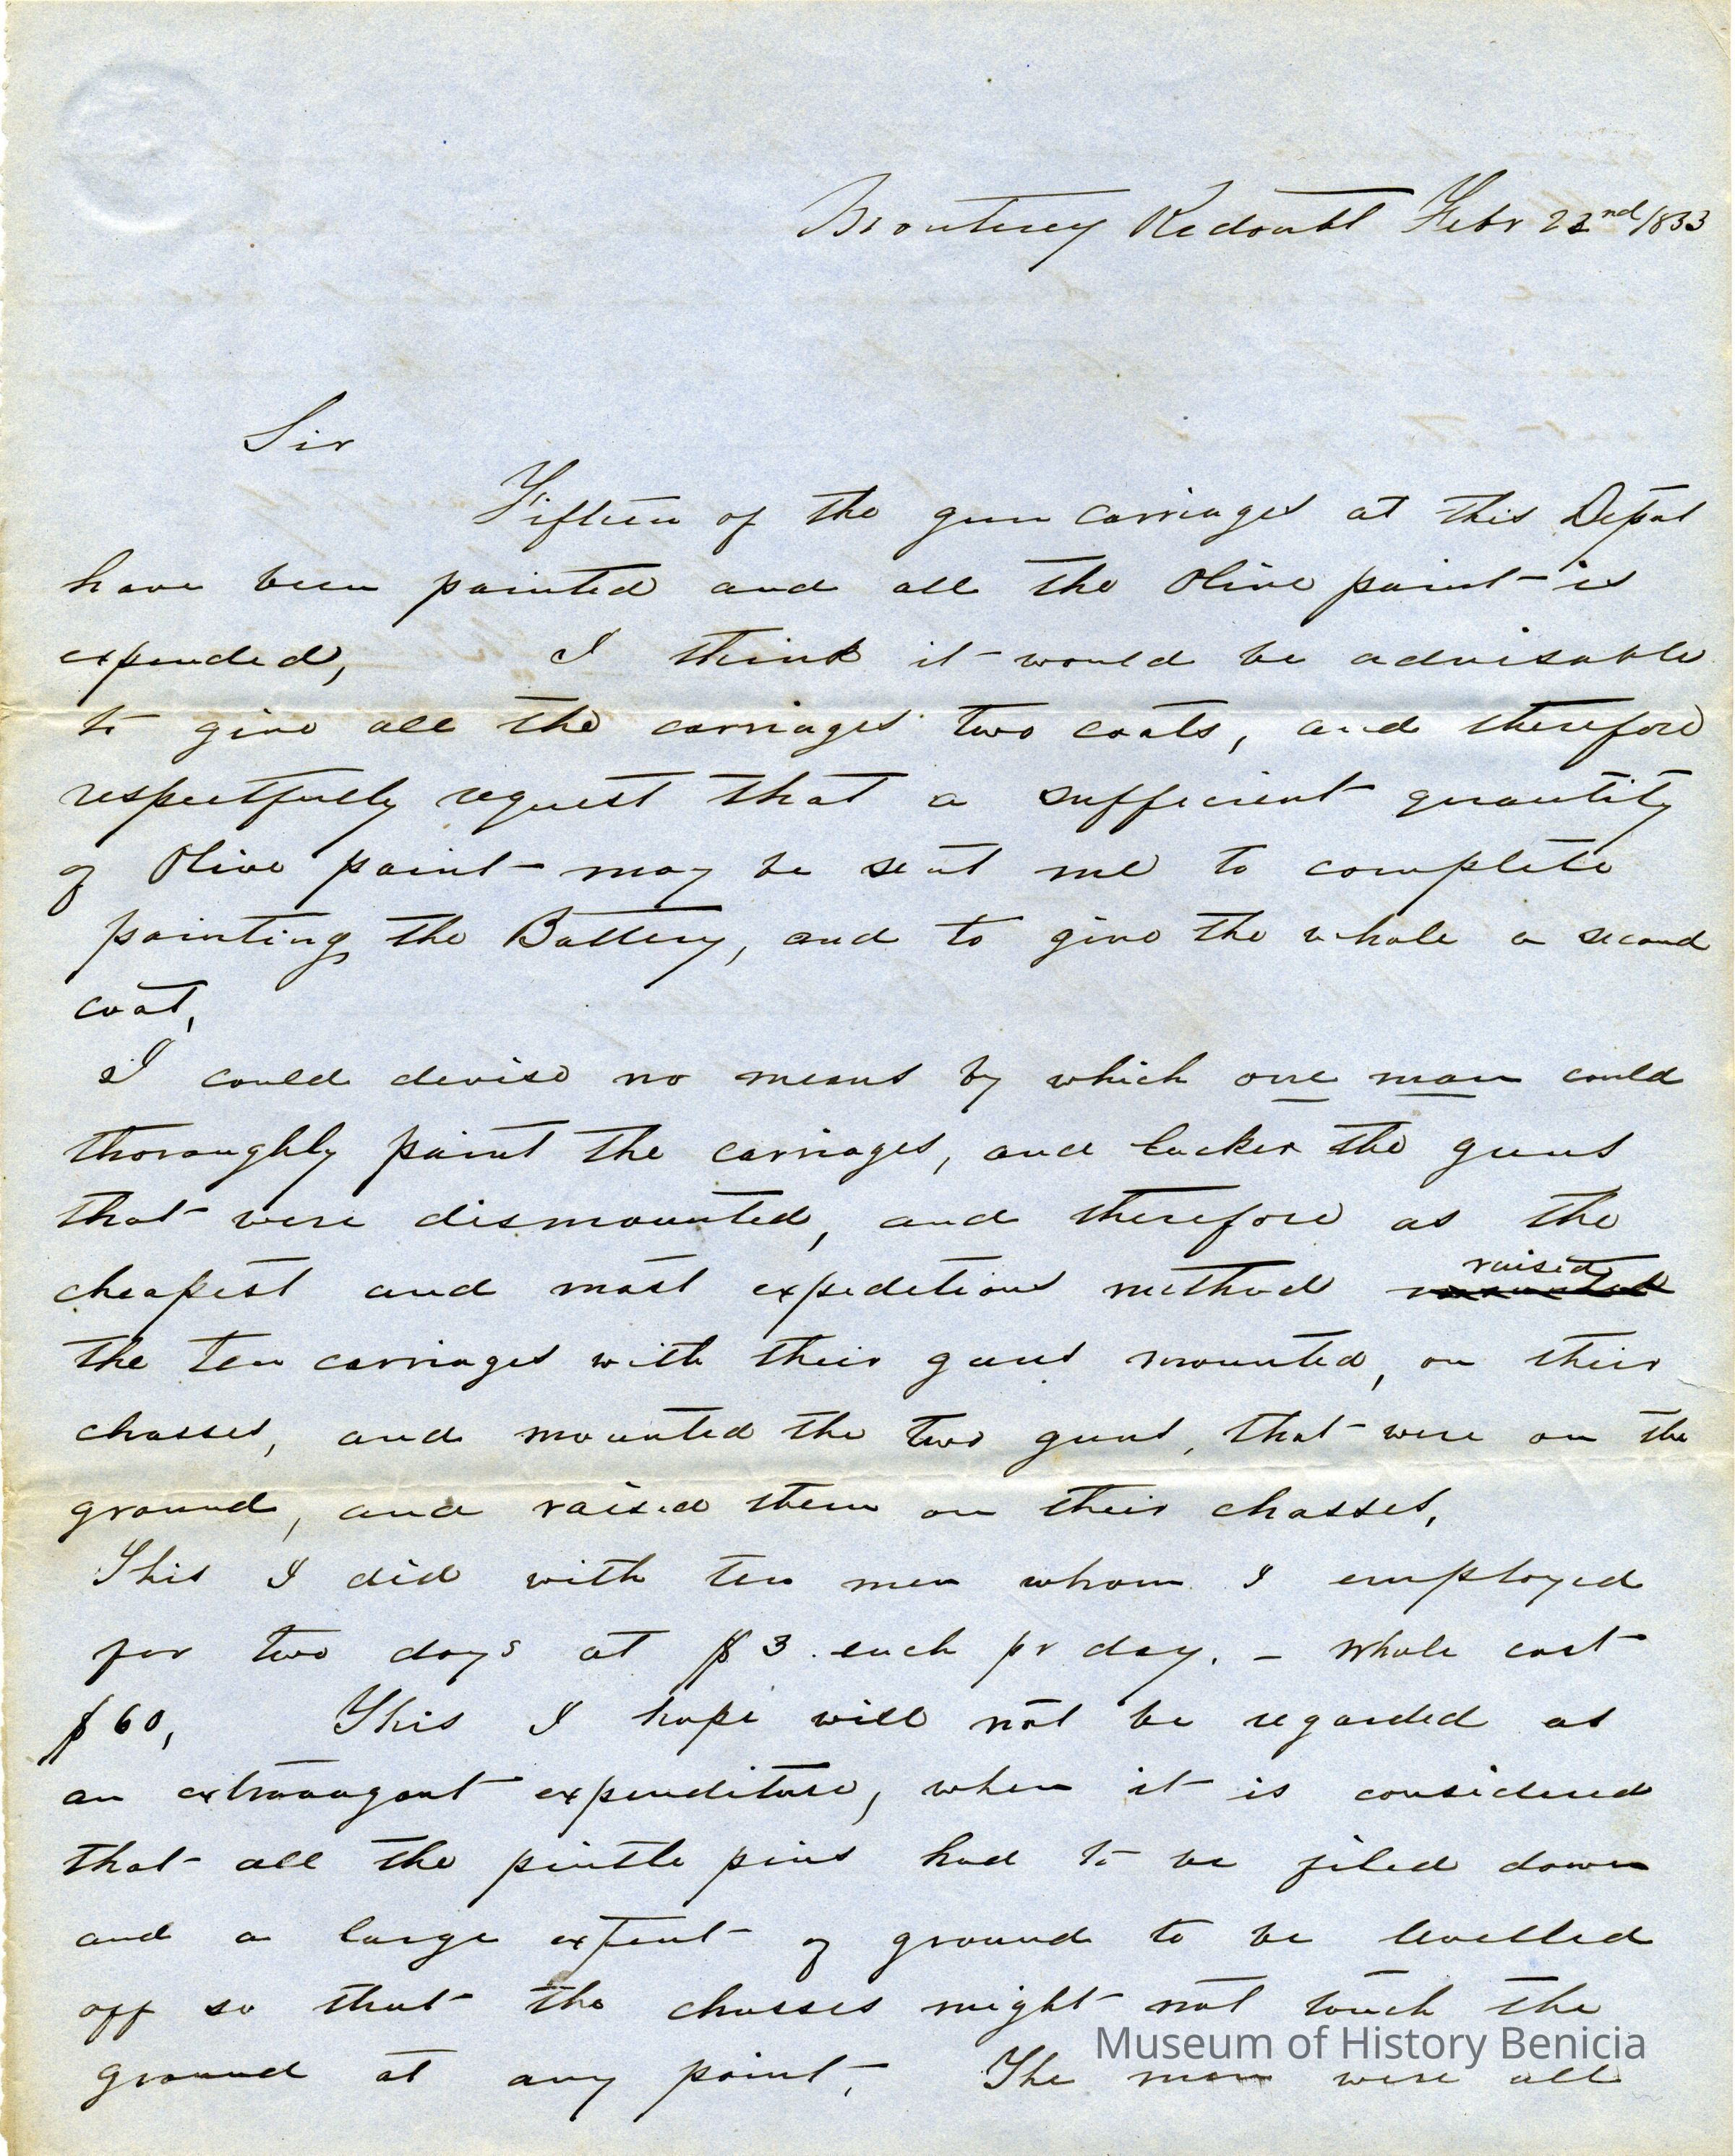 Monterey Redoubt Febr 22nd/1853
Sir
Fifteen of the gun carriages at this Depot
have been painted and all the Olive paint is
expended, I think it would be advisable
to give all the carriages two coats, and therefore
respectfully request that a sufficient quantity
of Olive paint may be sent me to complete
painting the Battery, and to give the whole a second
coat,
I could devise no means by which one man could
thoroughly paint the carriages, and lacker the guns
that were dismounted, and therefore as the
cheapest and most expeditious method raised
the ten carriages with their guns mounted, on their
chasses, and mounted the two guns, that were on the
ground, and raised them on their chasses,
This I did with ten men whom I employed
for two days at $3 each pr day. – Whole cost
$60, This I hope will not be regarded as
an extravagant expenditure, when it is considered
that all the pintle pins had to be filed down
and a large extent of ground to be levelled
off so that the chasses might not touch the
ground at any point, The men were all
Museum of History Benicia